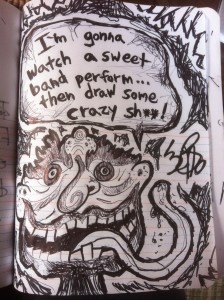 I'm gonna
watch a sweet
band perform...
then draw some
crazy sh*y!